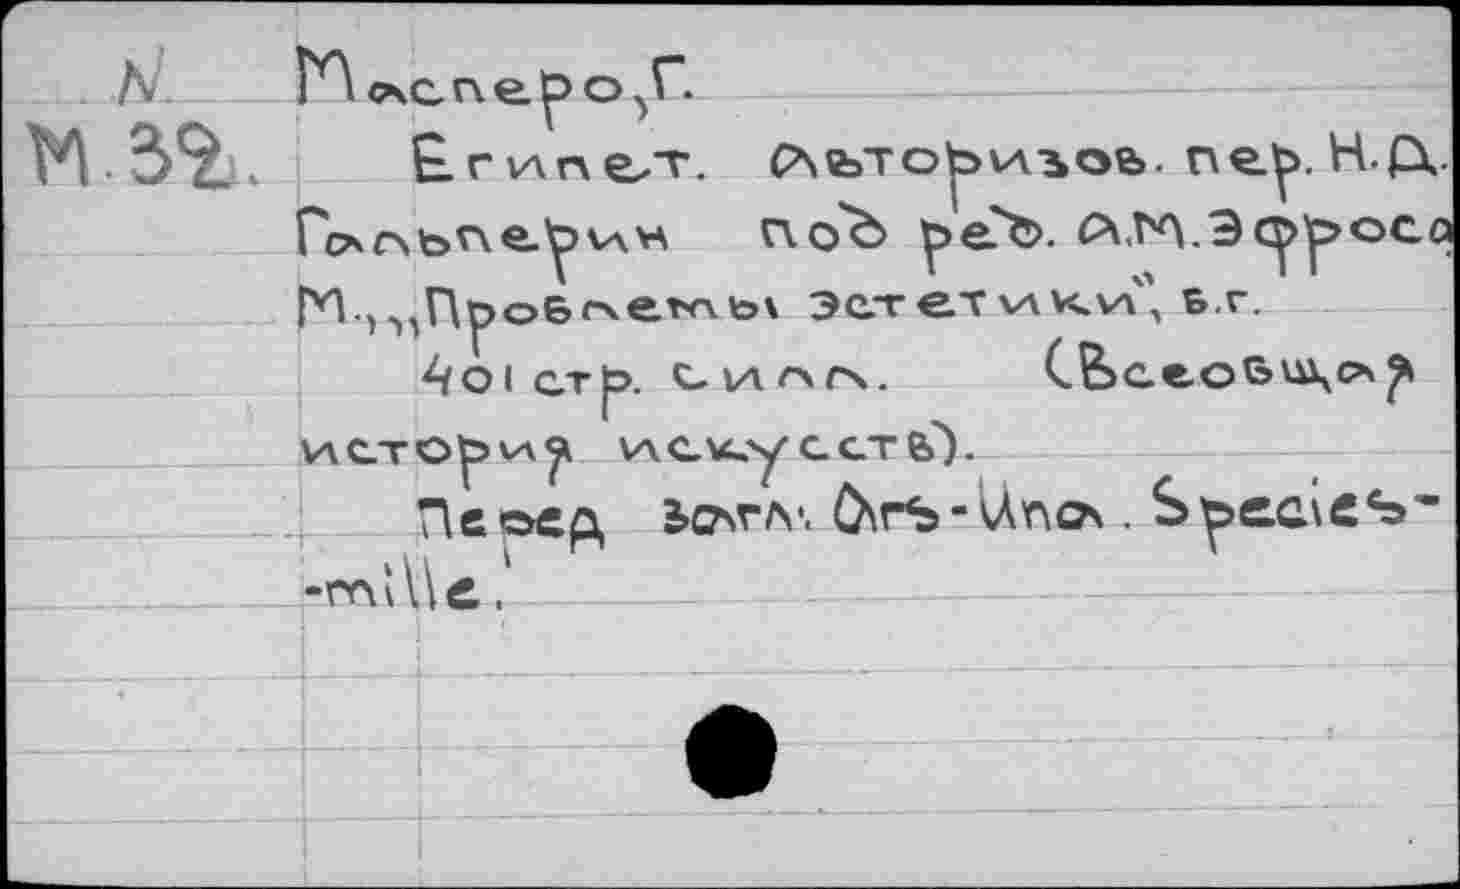 N Масперо, Г.
М. 32. Египет. Авторизов. пер. Н.Д.
Гальперин под ред. А.М.Эфроса
М., „Проблемы эстетики", б.г.
401 стр. с илл. (Всеобщая
история искусств).
Перед загл: Ars-Una. Species-
-mille.